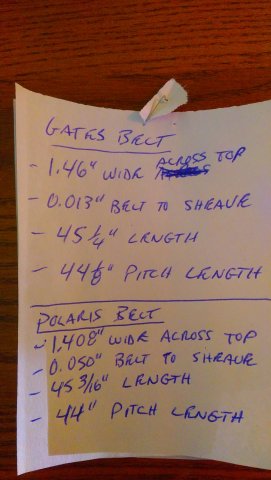 GATES BELT
- 1.46" WIDE ACROSS TOP
- 0.013" BELT TO SHEAVE
- 45 1/4" LENGTH
- 44 1/8" PITCH LENGTH
POLARIS BELT
- 1.408" WIDE ACROSS TOP
- 0.050" BELT TO SHEAVE
- 45 3/16" LENGTH
- 44" PITCH LENGTH